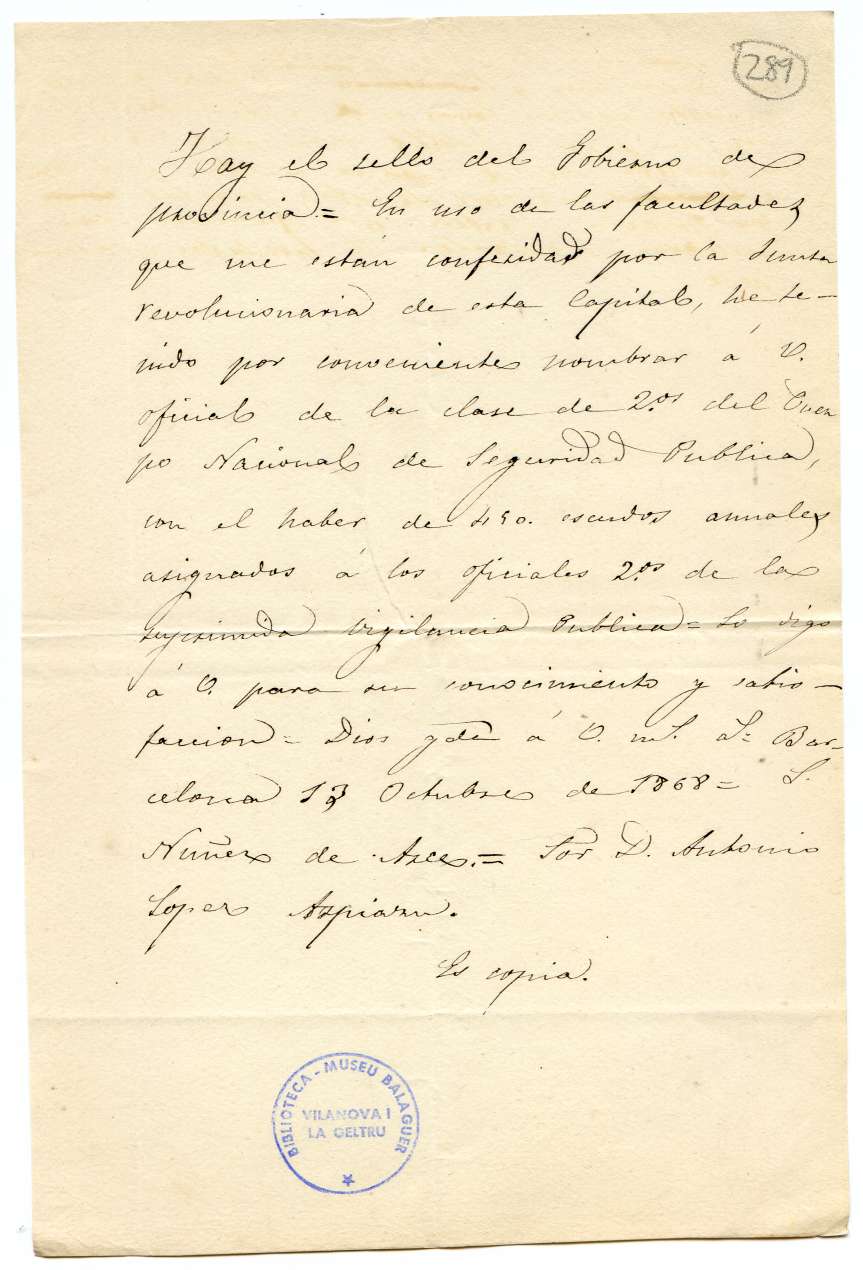 289
Hay el sello del Gobierno de
provincia.= En uso de las facultades
que me están conferidas por la Junta
revolucionaria de esta Capital, he te-
nido por conveniente nombrar á V.
oficial de la clase de 2.os del Cuer
po Nacional de Seguridad Publica,
con el haber de 450. escudos annales
asignados á los oficiales 2.os de la
suprimida Vigilancia Publica = Lo digo
á V. para su conocimiento y satis-
faccion = Dios gde á V. m.s. a.s = Bar-
celona 13 Octubre de 1868 = G.
Nuñez de Arce. = Sor D. Antonio
Lopez Aspiazu.
Es copia.
BIBLIOTECA - MUSEU BALAGUER
VILANOVA I
LA GELTRU